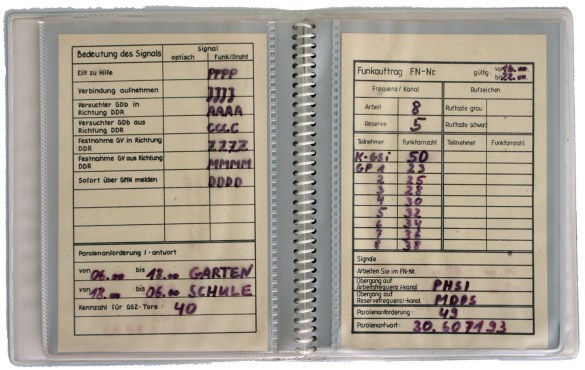 Bedeutung des Signals Signal
optisch Funk/Draht
Eilt zu Hilfe PPPP
Verbindung aufnehmen JJJJ
Versuchter GDb in
Richtung DDR AAAA
Versuchter GDb aus
Richtung DDR CCLC
Festnahme GV in Richtung
DDR ZZZZ
Festnahme GV aus Richtung
DDR MMMM
Sofort über GMN melden DDDD
Parolenanforderung / -antwort
von 06.00 bis 18.00 GARTEN
von 18.00 bis 06.00 SCHULE
Kennzahl für GSZ-Tore: 40
Funkauftrag FN-Nr. gültig: von 16.00
bis 22.00
Frequenz / Kanal Rufzeichen
Arbeit 8 Ruftaste grau:
Reserve 5 Ruftaste schwarz:
Teilnehmer Funkfarnzahl Teilnehmer Funkfarnzahl
K-GSi 50
GP 1 23
2 25
3 28
4 30
5 32
6 34
7 36
8 38
Signale
Arbeiten Sie im FN-Nr.
Übergang auf
Arbeitsfrequenz/-kanal PHSI
Übergang auf
Reservefrequenz/-kanal MDPS
Parolenanforderung: 49
Parolenantwort: 30.607193